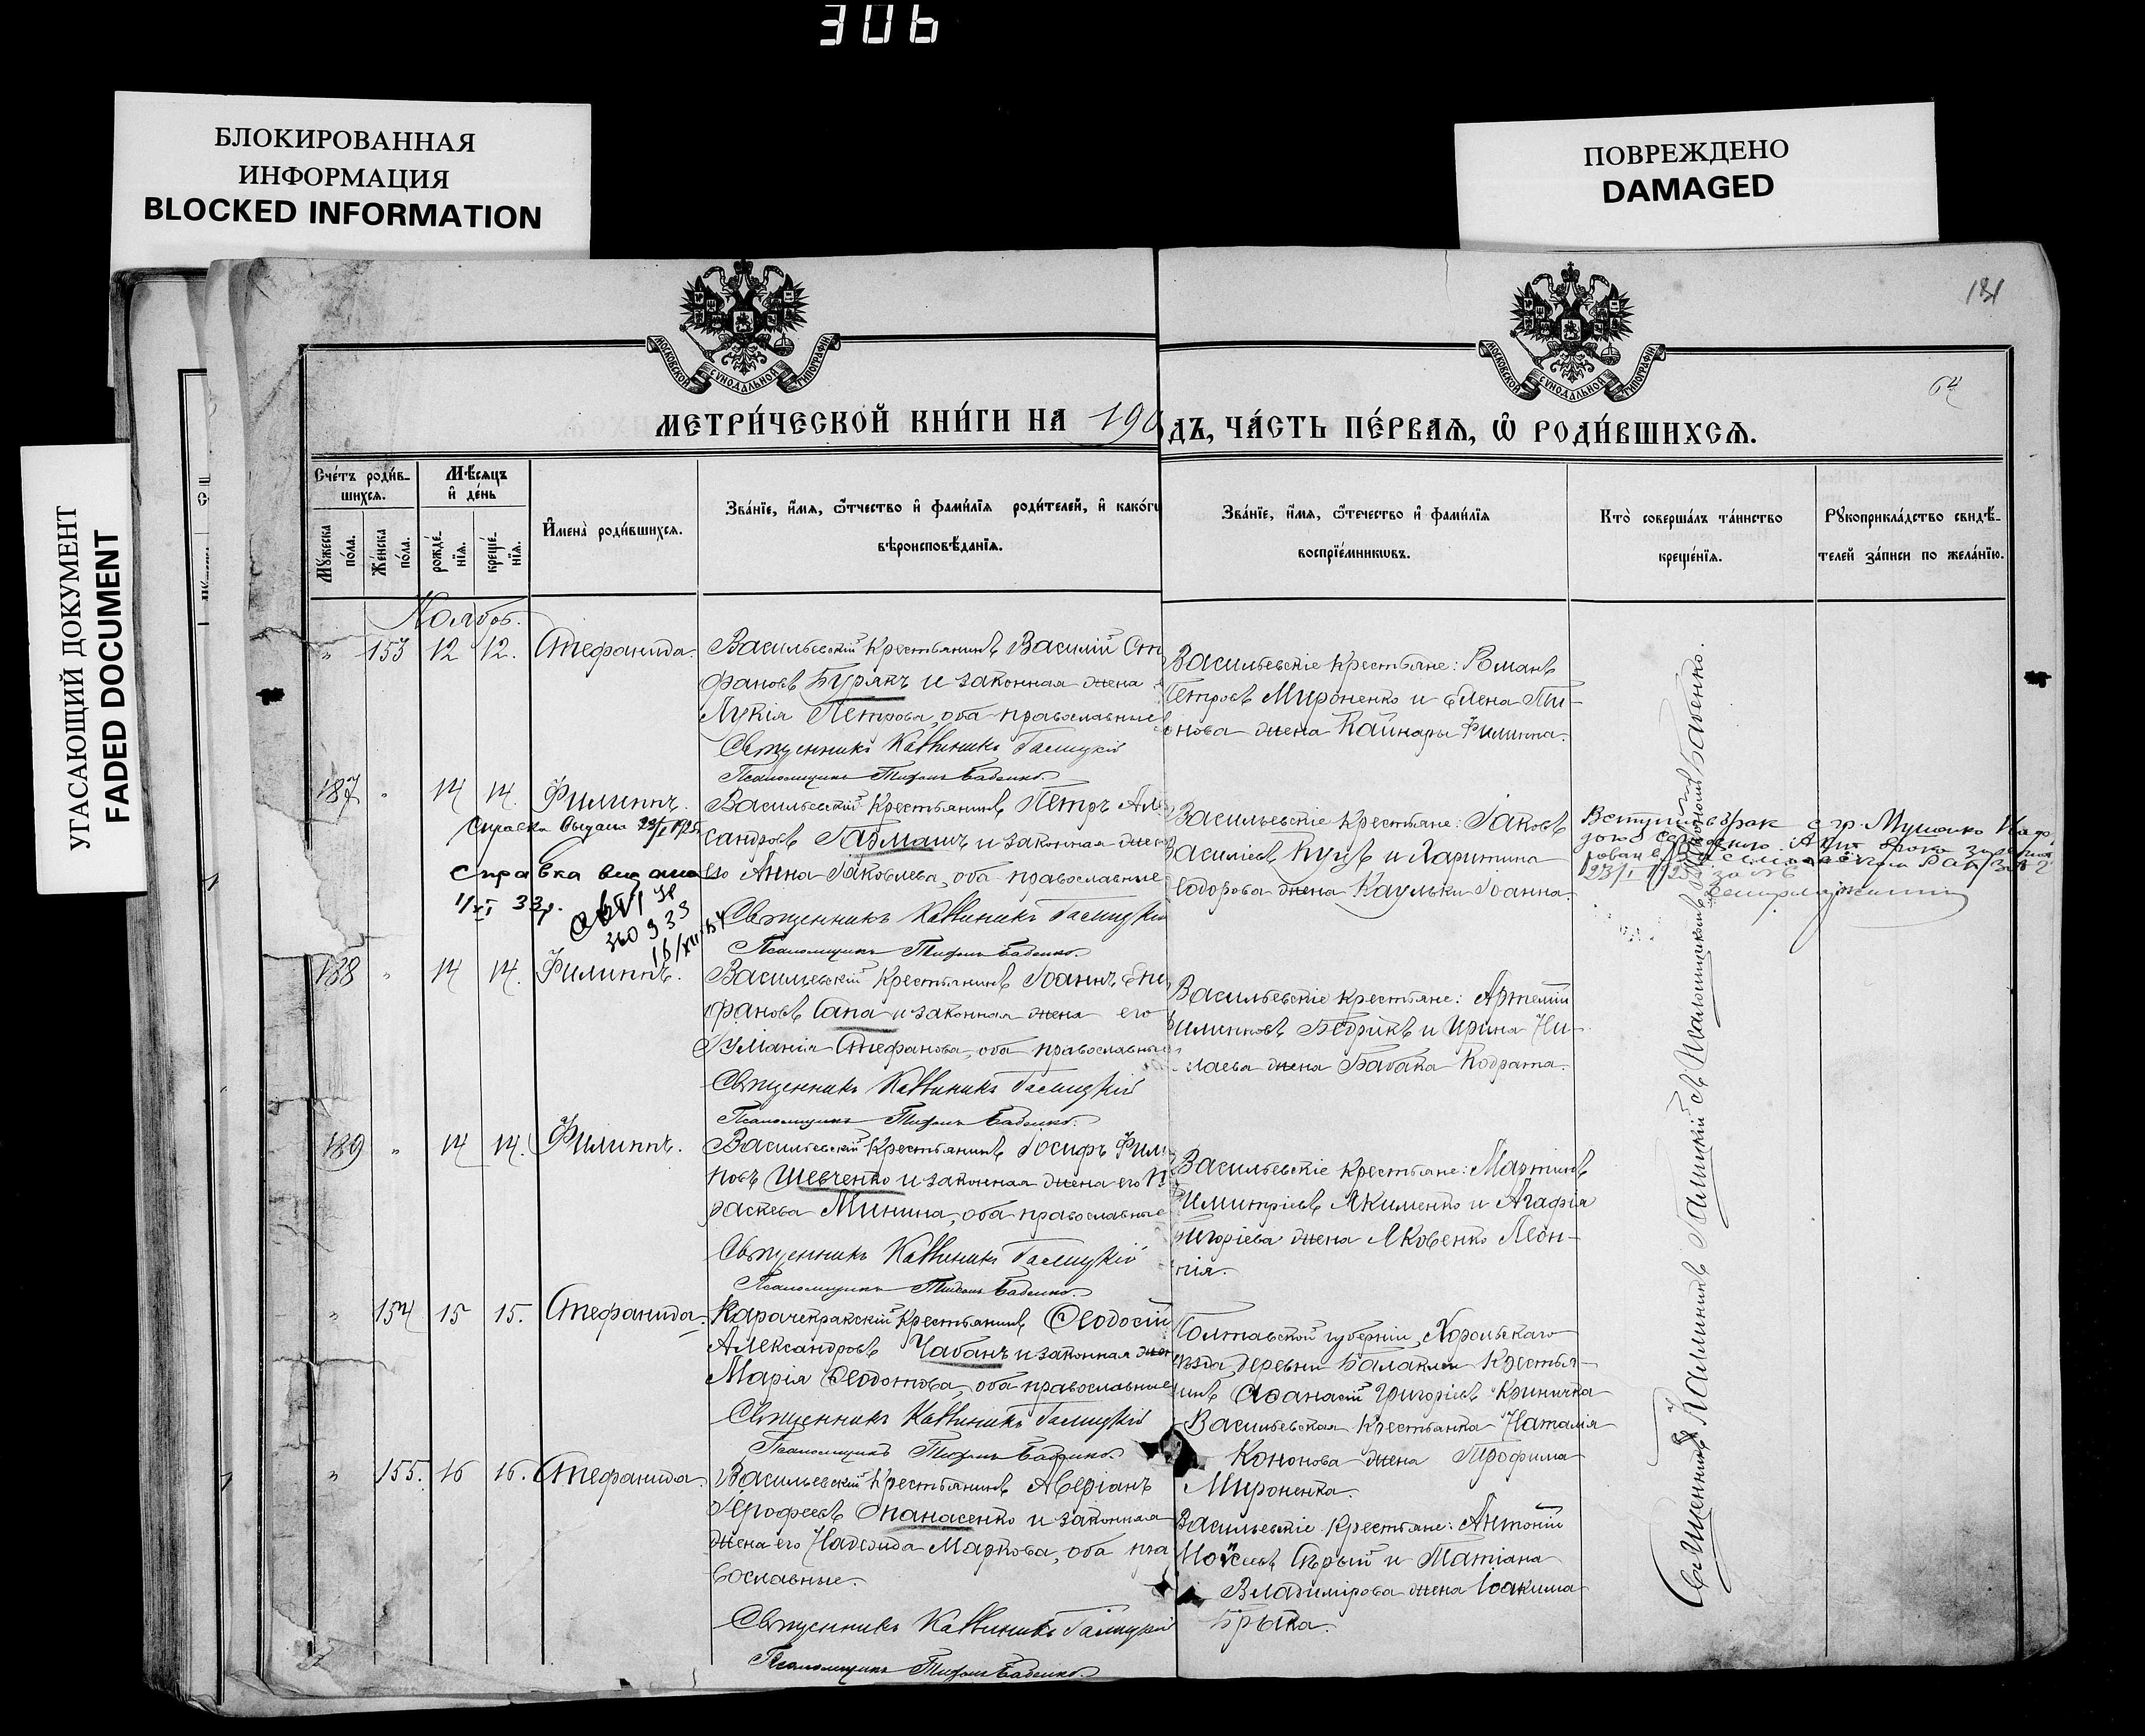 306
БЛОКИРОВАННАЯ
ИНФОРМАЦИЯ
BLOCKED INFORMATION
ПОВРЕЖДЕНО
DAMAGED
УГАСАЮЩИЙ ДОКУМЕНТ
FADED DOCUMENT
181
64
МОСКОВСКОЙ СѴНОДАЛЬНОЙ ТИПОГРАФІИ
МОСКОВСКОЙ СѴНОДАЛЬНОЙ ТИПОГРАФІИ
МЕТРИ́ЧЕСКОЙ КНИ́ГИ НА 190
ДЪ, ЧА́СТЬ ПЕ́РВАѦ, Ѡ҆ РОДИ́ВШИХСѦ.
Сче́тъ роди́в-
шихсѧ.
Мꙋжеска по́ла.
Же́нска по́ла.
Мѣ́сѧцъ
и҆ де́нь
рожде́нїѧ.
креще́нїѧ.
И҆мена̀ роди́вшихсѧ.
Зва́нїе, и҆́мѧ, ѻ҆́тчество и҆ фами́лїѧ роди́телей, и҆ како́гѡ
вѣроисповѣ́данїѧ.
Зва́нїе, и҆́мѧ, ѻ҆́течество и҆ фами́лїѧ
воспрїе́мникѡвъ.
Кто̀ соверша́лъ та́инство
креще́нїѧ.
Рꙋкоприкла́дство свидѣ́-
телей за́писи по жела́нїю.
Ноябрь.
" 153 12 12. Стефанида. Васильевскій крестьянинъ Василій Сте
фановъ Бурякъ и законная жена
Лукія Петрова, оба православные
Священникъ Каллиникъ Галицкій
Псаломщикъ Тихонъ Бабенко.
Васильевскіе крестьяне: Романъ
Петровъ Мироненко и Елена Ти-
онова жена Кайнары Филиппа.
187 " 14 14. Филиппъ. Васильевскій крестьянинъ Петръ Але
сандровъ Газмашъ и законная жена
его Анна Яковлева, оба православные
Священникъ Каллиникъ Галицкій
Псаломщикъ Тихонъ Бабенко.
Справка выдана 23/I 1925
справка выдана
1/XI 33г.
360 933
16/XII 54
Васильевскіе крестьяне: Іаковъ
Василіевъ Куцъ и Харитина
Ѳеодорова жена Каульки Іоанна.
Вступил в брак с гр. Мушенко Надеж
23/I 1925 за №6
188 " 14 14. Филиппъ. Васильевскій крестьянинъ Іоаннъ Епи
фановъ Сапа и законная жена его
Іуліанія Стефанова, оба православные
Священникъ Каллиникъ Галицкій
Псаломщикъ Тихонъ Бабенко.
Васильевскіе крестьяне: Артемій
Филипповъ Бедрикъ и Ирина Ни-
лаева жена Бабака Кодрата.
189 " 14 14. Филиппъ. Васильевскій крестьянинъ Іосифъ Фили
повъ Шевченко и законная жена его П
раскева Минина, оба православные
Священникъ Каллиникъ Галицкій
Псаломщикъ Тихонъ Бабенко.
Васильевскіе крестьяне: Мартинъ
Димитріевъ Якименко и Агафія
Григоріева жена Яковенко Леон-
тія.
" 154 15 15. Стефанида. Карачекракскій крестьянинъ Ѳеодосій
Александровъ Чабанъ и законная жен
Марія Ѳеодотова, оба православные
Священникъ Каллиникъ Галицкій
Псаломщикъ Тихонъ Бабенко.
Полтавской губерніи, Хорольскаго
уѣзда деревни Балаклеи крестья-
нинъ Аѳанасій Григоріевъ Криничка
Васильевская крестьянка Наталія
Кононова жена Трофима
Мироненка.
" 155. 16 16. Стефанида. Васильевскій крестьянинъ Аверіанъ
Ерофеевъ Опанасенко и законная
жена его Надежда Маркова, оба пра
вославные.
Священникъ Каллиникъ Галицкій
Псаломщикъ Тихонъ Бабенко.
Васильевскіе крестьяне: Антоній
Моѵсеевъ Сѣрый и Татіана
Владимірова жена Іоакима
Брыка.
Священникъ Каллиникъ Галицкій съ Псаломщикомъ Тихономъ Бабенко.